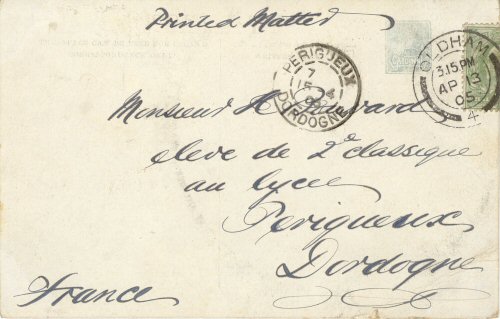 Printed Matter
OLDHAM
3.15 PM
AP 13
05
4
PERIGUEUX
7
15 4
DORDOGNE
Monsieur H
elève de 2e classique
au lycée
Perigueux
Dordogne
France